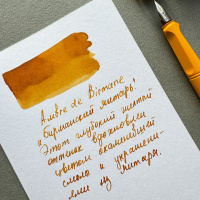 Ambre de Birmanie
"Бирманский янтарь!
Этот глубокий желтый
оттенок вдохновлен
цветом окаменевшей
смолы и украшени-
ями из янтаря.